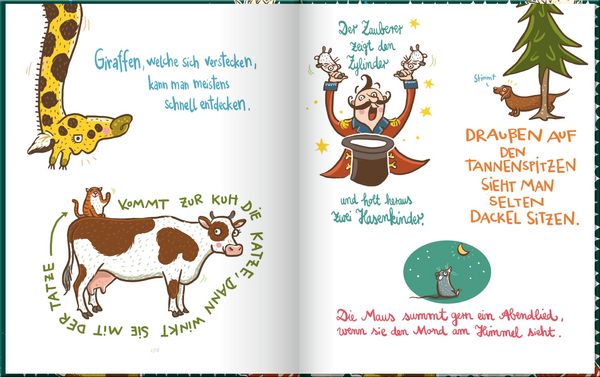 Giraffen, welche sich verstecken,
kann man meistens
schnell entdecken.
KOMMT ZUR KUH DIE KATZE, DANN WINKT SIE MIT DER TATZE
Der Zauberer
zeigt den
Zylinder
und holt heraus
zwei Hasenkinder.
Stimmt
DRAUßEN AUF
DEN
TANNENSPITZEN
SIEHT MAN
SELTEN
DACKEL SITZEN.
Die Maus summt gern ein Abendlied,
wenn sie den Mond am Himmel sieht.